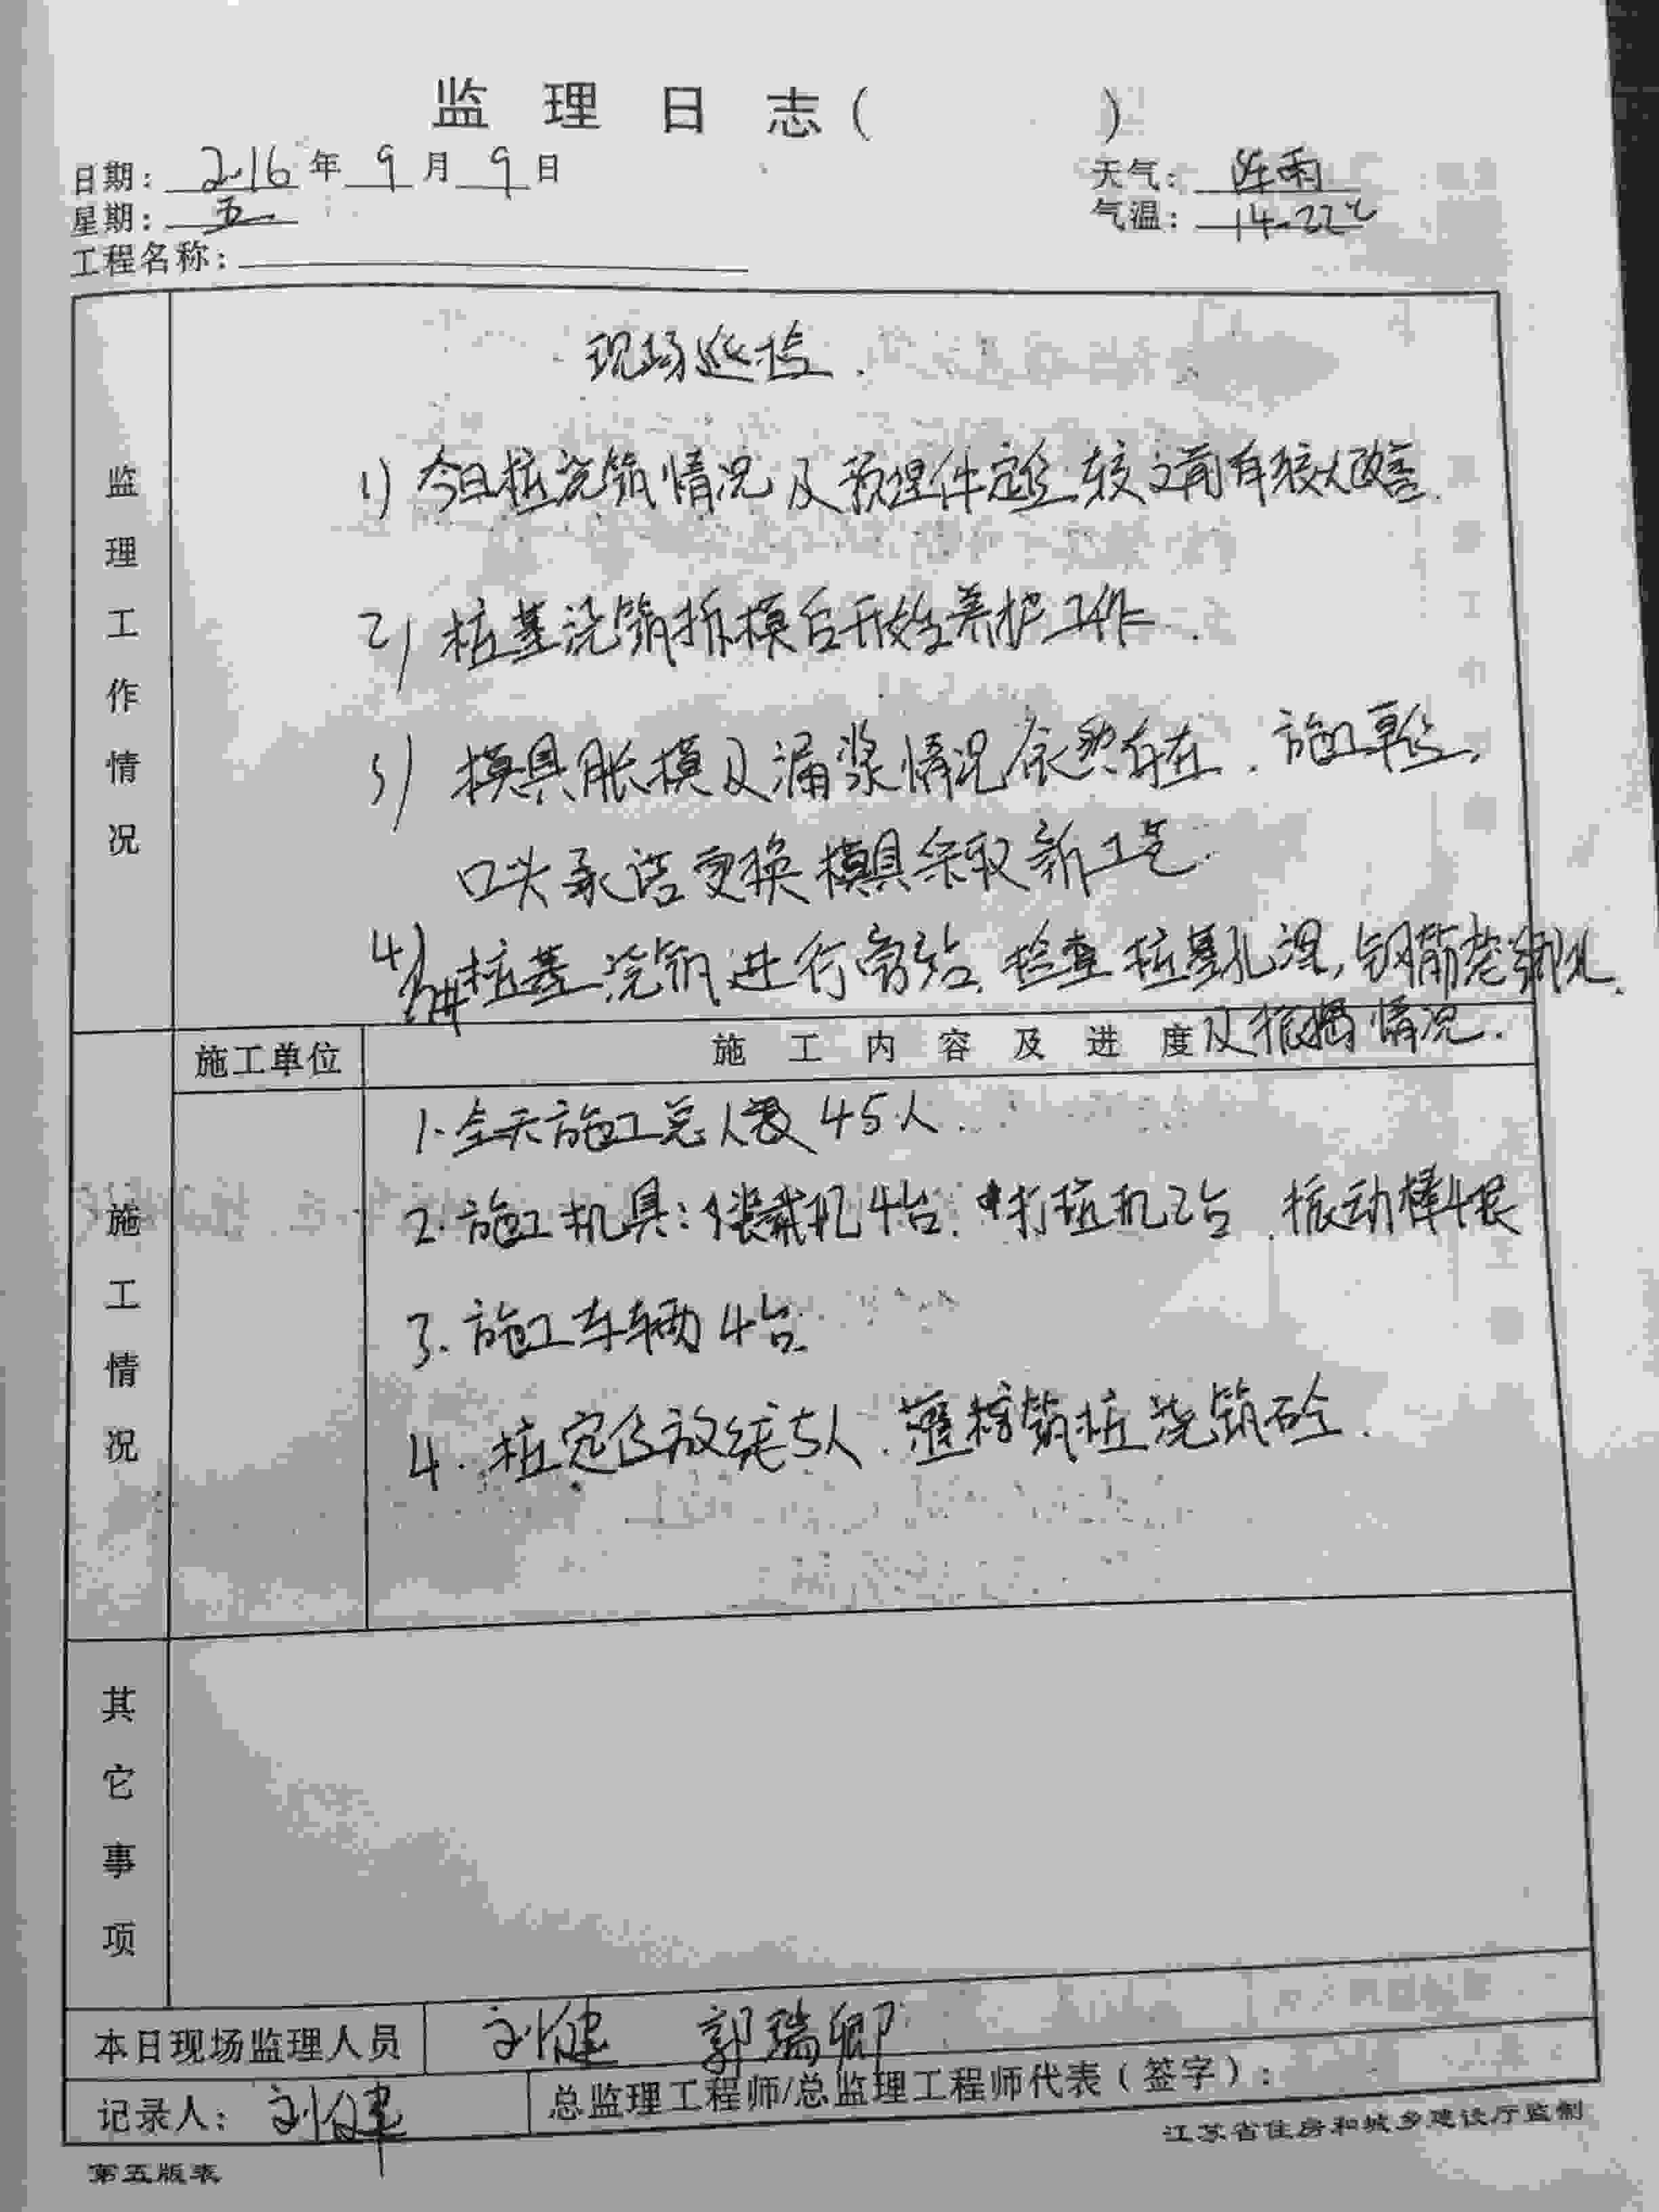 监理日志（ ）
日期：2016年9月9日 天气：阵雨
星期：五 气温：14-22℃
工程名称：
监理工作情况
现场巡检.
1) 今日桩浇筑情况及预埋件定位较之前有较大改善.
2) 桩基浇筑拆模后开始养护工作.
3) 模具胀模及漏浆情况依然存在. 施工单位,
口头承诺更换模具采取新工艺.
4) 桩基浇筑进行旁站. 检查桩基孔深, 钢筋
及振捣情况.
施工单位 施工内容及进度
施工情况
1. 全天施工总人数45人.
2. 施工机具: 装载机4台. 打桩机2台. 振动棒4根
3. 施工车辆4台.
4. 桩定位放线5人. 灌桩浇筑砼.
其它事项
本日现场监理人员 刘健 郭瑞卿
记录人：刘健 总监理工程师/总监理工程师代表（签字）：
江苏省住房和城乡建设厅监制
第五版表